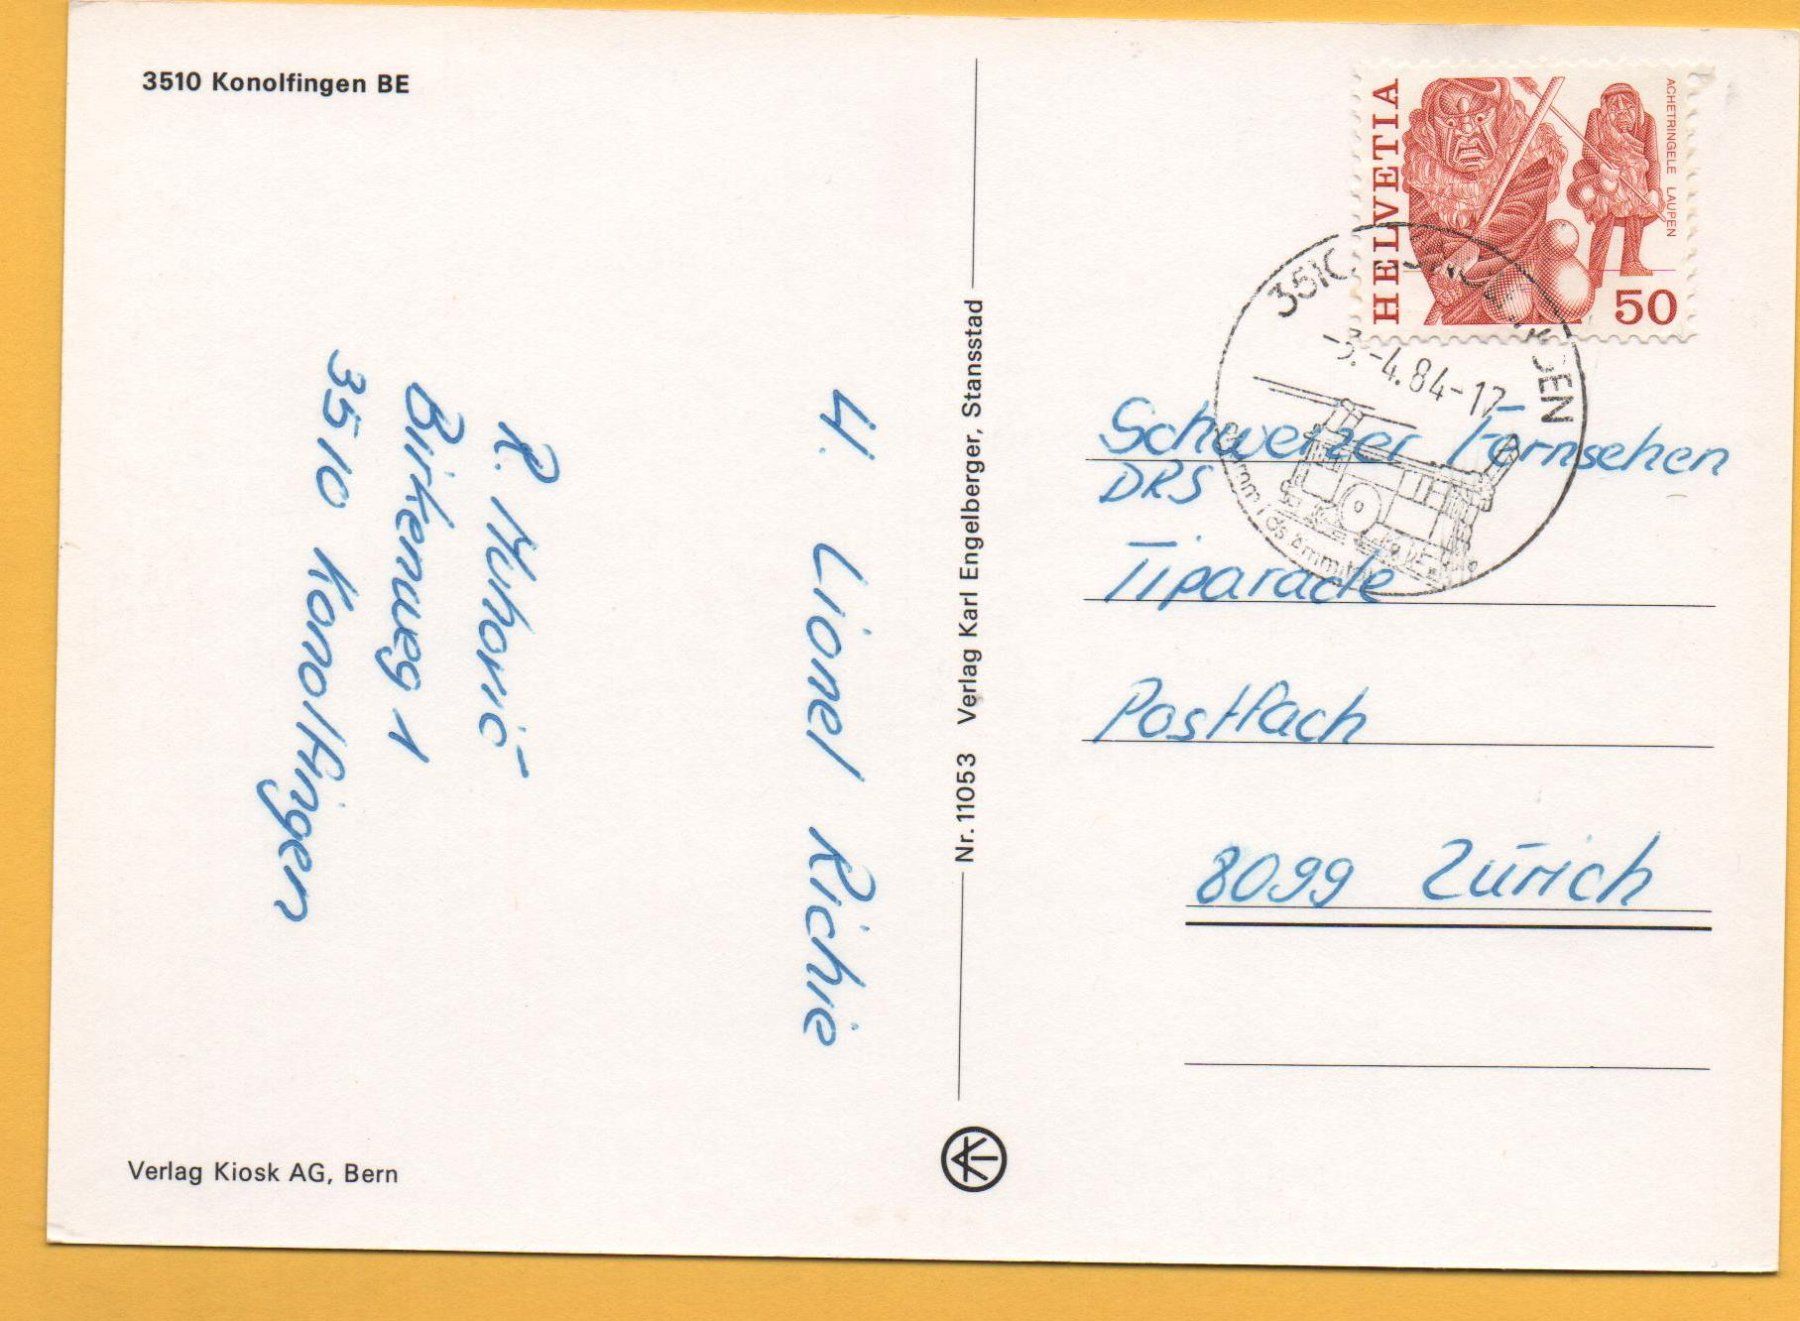 3510 Konolfingen BE
HELVETIA
ACHETRINGELE LAUPEN
50
-3.-4.84-17
Schweizer Fernsehen
DRS
Tiparade
Postfach
8099 Zürich
4. Lionel Richie
R. Muhorić
Birkenweg 1
3510 Konolfingen
Nr. 11053 Verlag Karl Engelberger, Stansstad
Verlag Kiosk AG, Bern